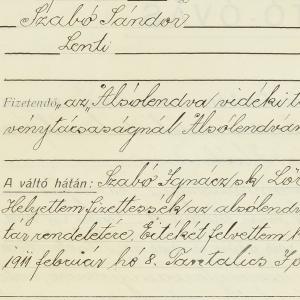 Szabó Sándor
Lenti
Fizetendő „az „Alsólendva vidéki t
vénytácsaságnál Alsólendván
A váltó hátán: Szabó Ignácz sk Lör
Helyettem fizettessék az alsólendv
tár rendeletére. Értékét felvettem
1911 február hó 8. Tantalics